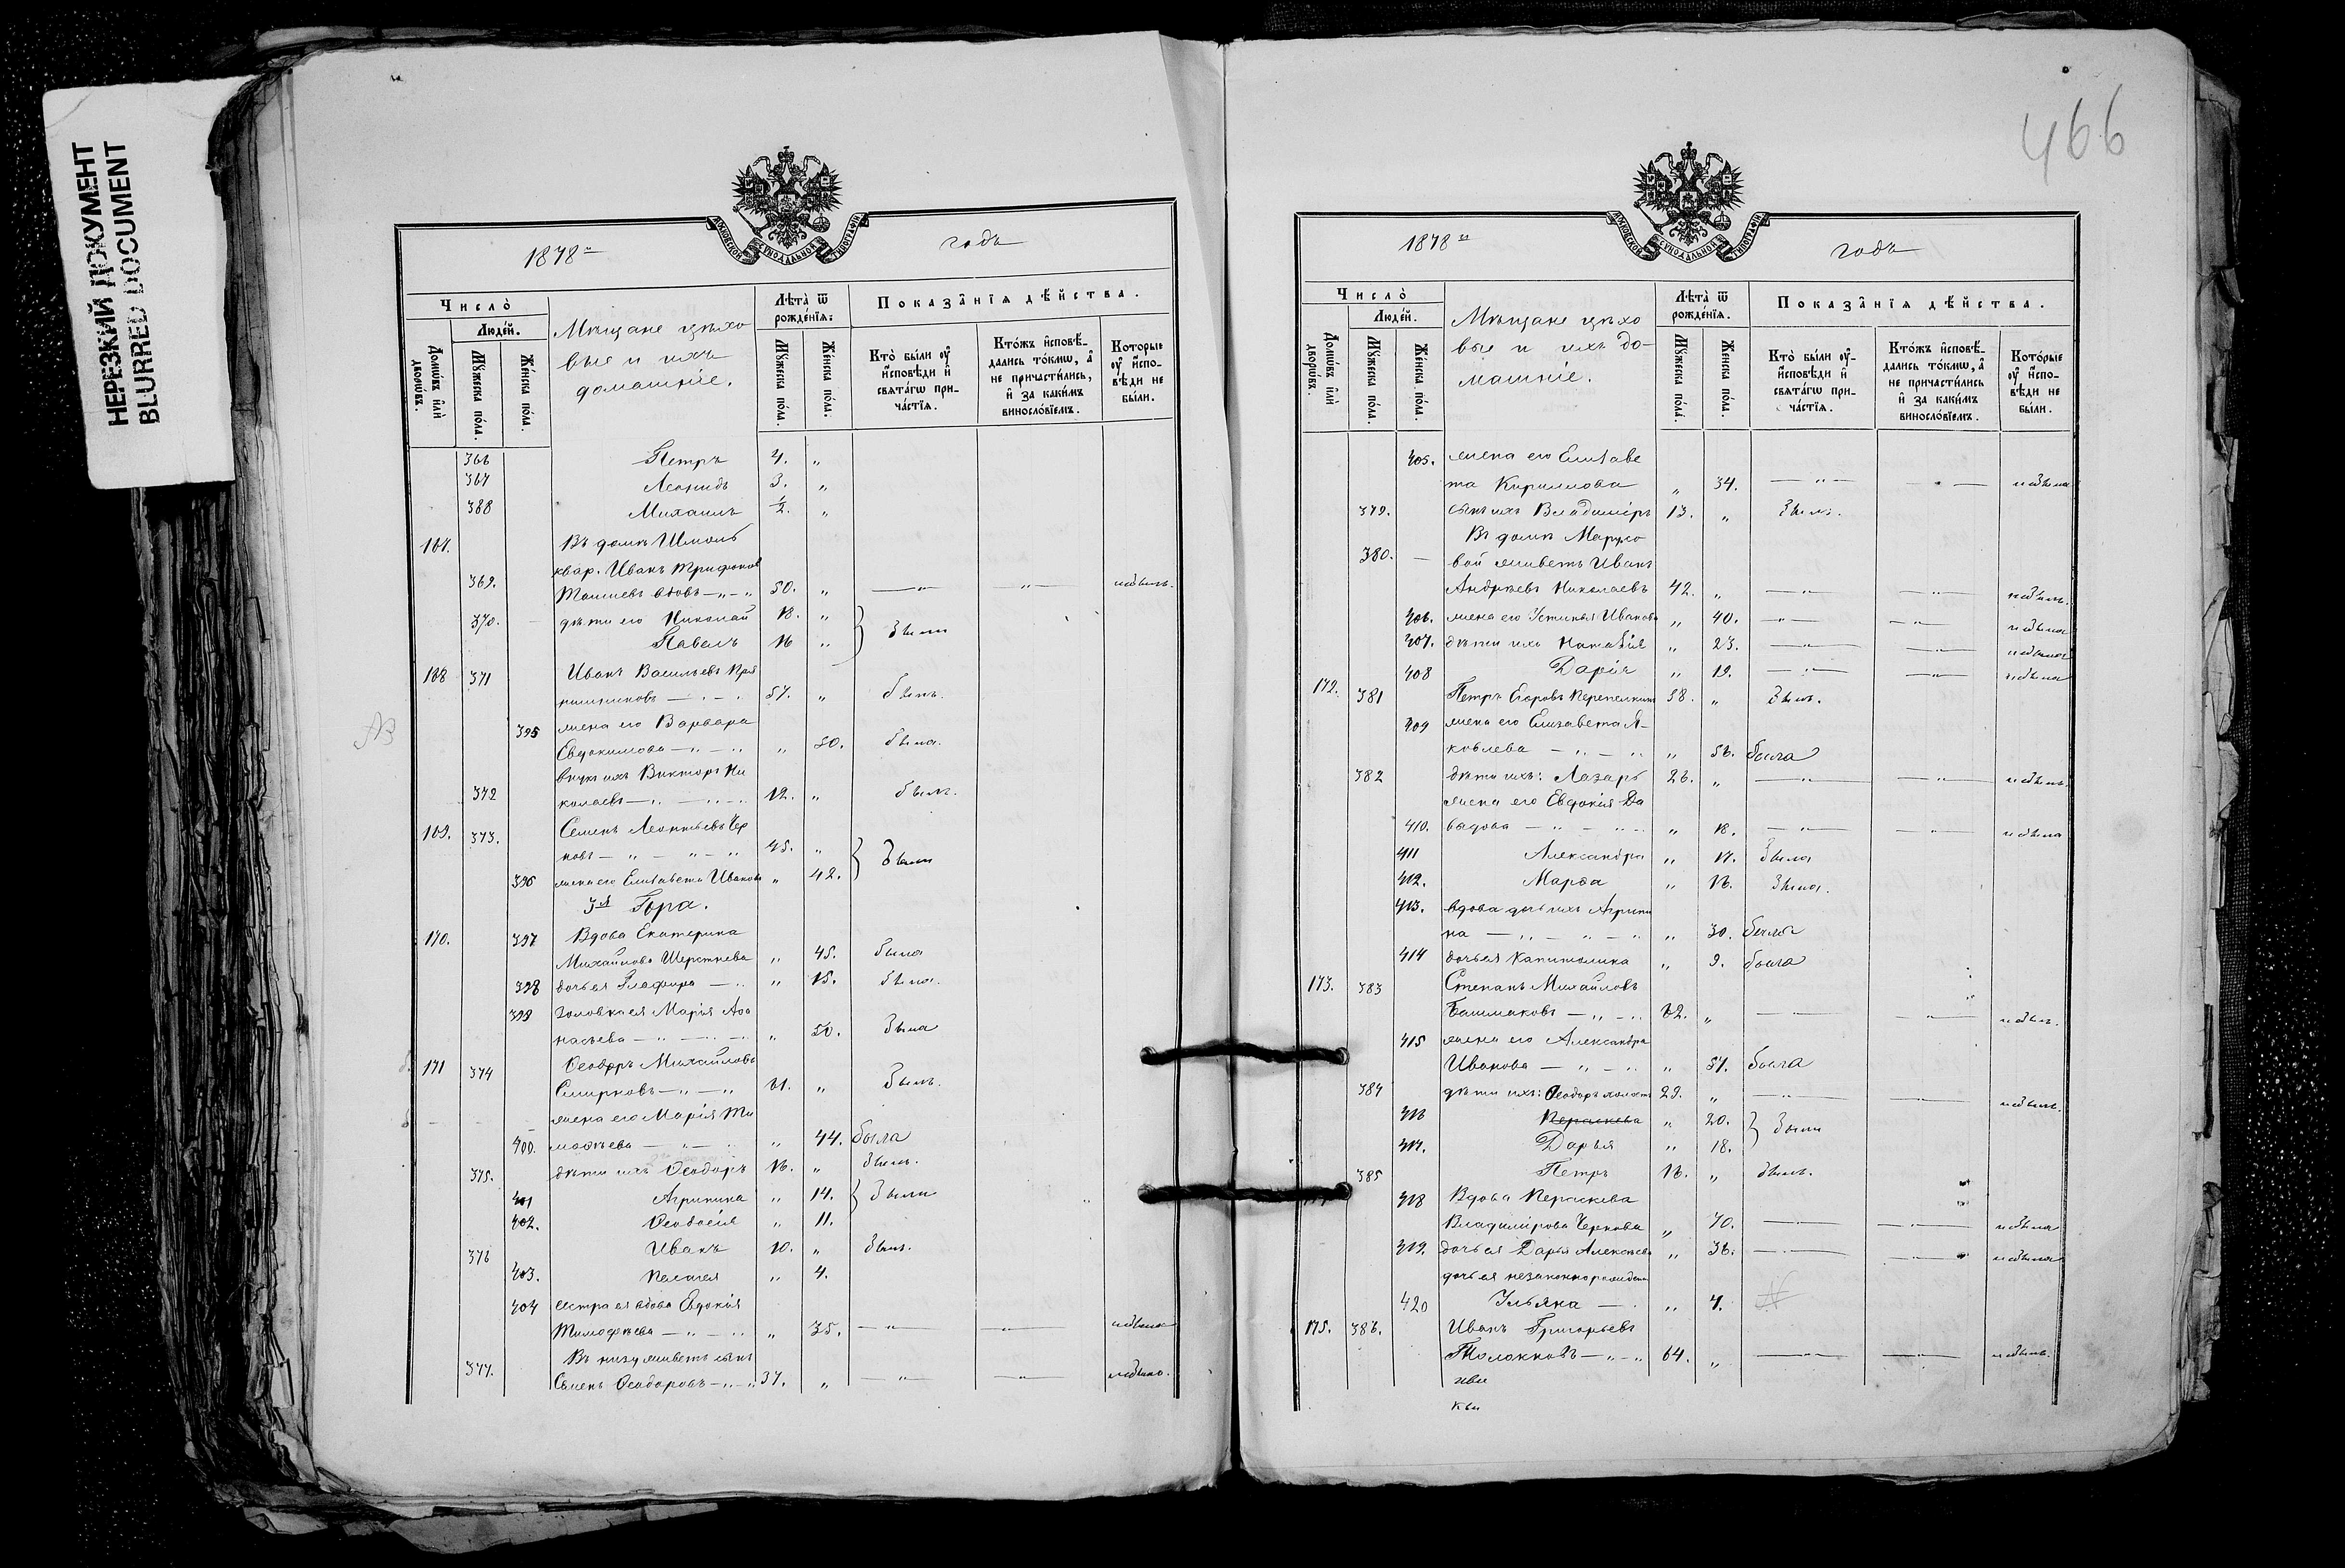 НЕРЕЗКИЙ ДОКУМЕНТ
BLURRED DOCUMENT
1878 годъ
Число̀
Людей.
Домѡвъ или дворѡвъ.
Мꙋжеска пола.
Женска пола.
Мѣщане цѣхо
вые и ихъ
домашніе.
Лѣта ѿ рожденїѧ:
Мꙋжеска пола.
Женска пола.
Показанїѧ дѣйства.
Кто были оу исповѣди и свѧтагѡ причастїѧ.
Ктожъ исповѣдались токмѡ, а не причастились, и за какимъ винословїемъ.
Которые оу исповѣди не были.
366 Петръ 4. "
367 Леонидъ 3. "
388 Михаилъ ½. "
167. Въ домѣ Школь
квар. Иванъ Трифонов
369. вдовъ 50. " небылъ.
370. дѣти его Николай 18. "
Павелъ 16 " были
168 371 Иванъ Васильевъ
57. " былъ.
395 жена его Варвара
Евдокимова " 50. была.
внукъ ихъ Викторъ Ни
372 колаевъ 12. " былъ.
169. 373. Семенъ Леонтьевъ Чер
новъ 45. "
396 жена его Елизавета Иванова " 42. были
3я Гора.
170. 397 Вдова Екатерина
Михайлова Шерстнева " 45. была
398 дочь ея Глафира " 15. была.
399 золовка ея Марія Аѳа
насьева " 50. была
171 374 Ѳеодоръ Михайловъ
Смирновъ 61. " былъ.
жена его Марія Ти
400. моѳѣева " 44. была
375. дѣти ихъ Ѳеодоръ 16. " былъ.
401 Агрипина " 14. были
402. Ѳеодосія " 11.
376 Иванъ 10. " былъ.
403. Пелагея " 4.
404 сестра ея вдова Евдокія
Тимофѣева " 35. небыла
Въ низу живетъ сынъ
377. Семенъ Ѳеодоровъ 37. " небылъ.
466
1878 годъ
Число̀
Людей.
Домѡвъ или дворѡвъ.
Мꙋжеска пола.
Женска пола.
Мѣщане цѣхо
вые и ихъ до-
машніе.
Лѣта ѿ рожденїѧ.
Мꙋжеска пола.
Женска пола.
Показанїѧ дѣйства.
Кто были оу исповѣди и свѧтагѡ причастїѧ.
Ктожъ исповѣдались токмѡ, а не причастились и за какимъ винословїемъ.
Которые оу исповѣди не были.
405. жена его Елизаве
та Кириллова " 34. небыла
379. сынъ ихъ Владиміръ 13. " былъ.
Въ домѣ Марухо
380. вой живетъ Иванъ
Андрѣевъ Николаевъ 42. " небылъ.
406. жена его Устинья Иванова " 40. небыла
407. дѣти ихъ Наталія " 23. небыла
408 Дарія " 19. небыла
172. 381 Петръ Егоровъ Перепелкинъ 58. " былъ.
409 жена его Елизавета Я-
ковлева " 56. была
382 дѣти ихъ: Лазарь 26. " небылъ.
жена его Евдокія Да
410. выдова " 18. небыла
411 Александра " 17. была
412. Марѳа " 16. была.
413. вдова дочь ихъ Агрипи
на " 30. была
414 дочь ея Капитолина " 9. была
173. 383 Степанъ Михайловъ
Башмаковъ 62. " небылъ.
415 жена его Александра
Иванова " 57. была
384 дѣти ихъ: Ѳеодоръ холостъ 29. " небылъ.
416 Параскева " 20. были
417. Дарья " 18.
385 Петръ 16. " былъ.
418 Вдова Параскева
Владимірова Чернова " 70. небыла
419. дочь ея Дарья Алексѣева " 36. небыла
дочь ея незаконнорожден
420 Ульяна " 4.
175. 386. Иванъ Григорьевъ
Толокновъ 64. " небылъ.